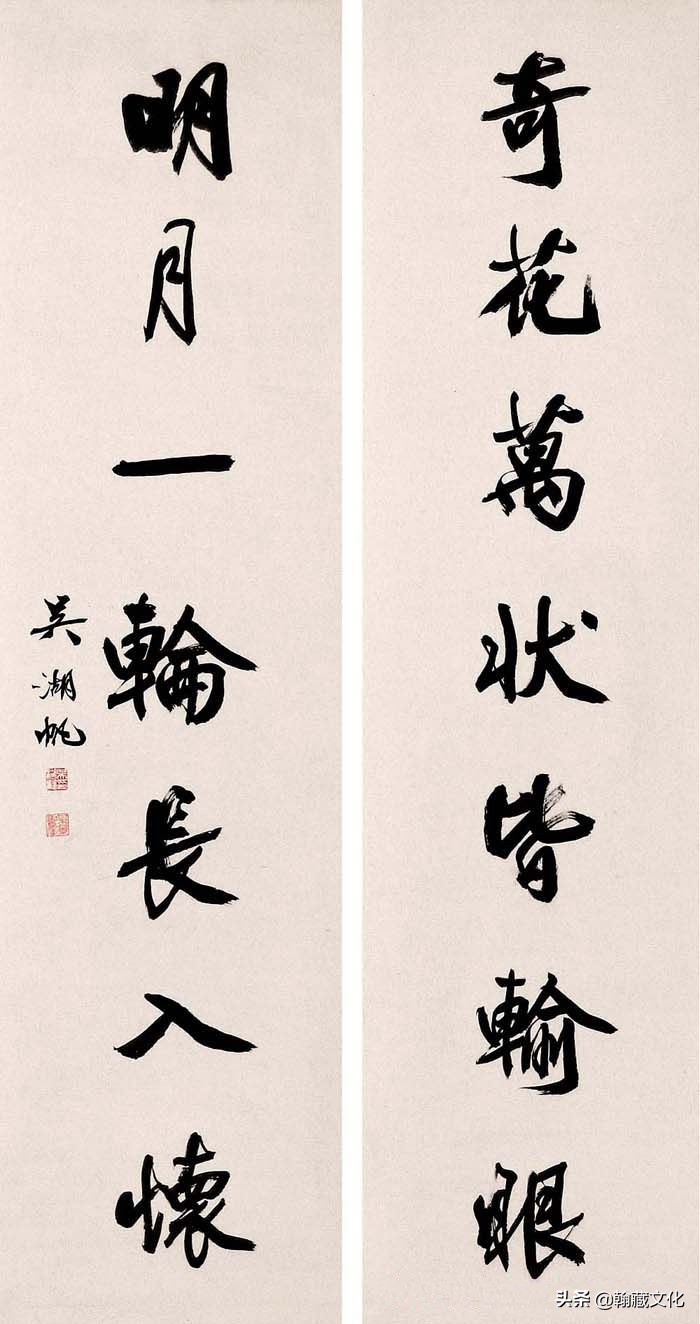 奇花萬状皆輸眼
明月一輪長入懷
吳湖帆
头条 @翰藏文化